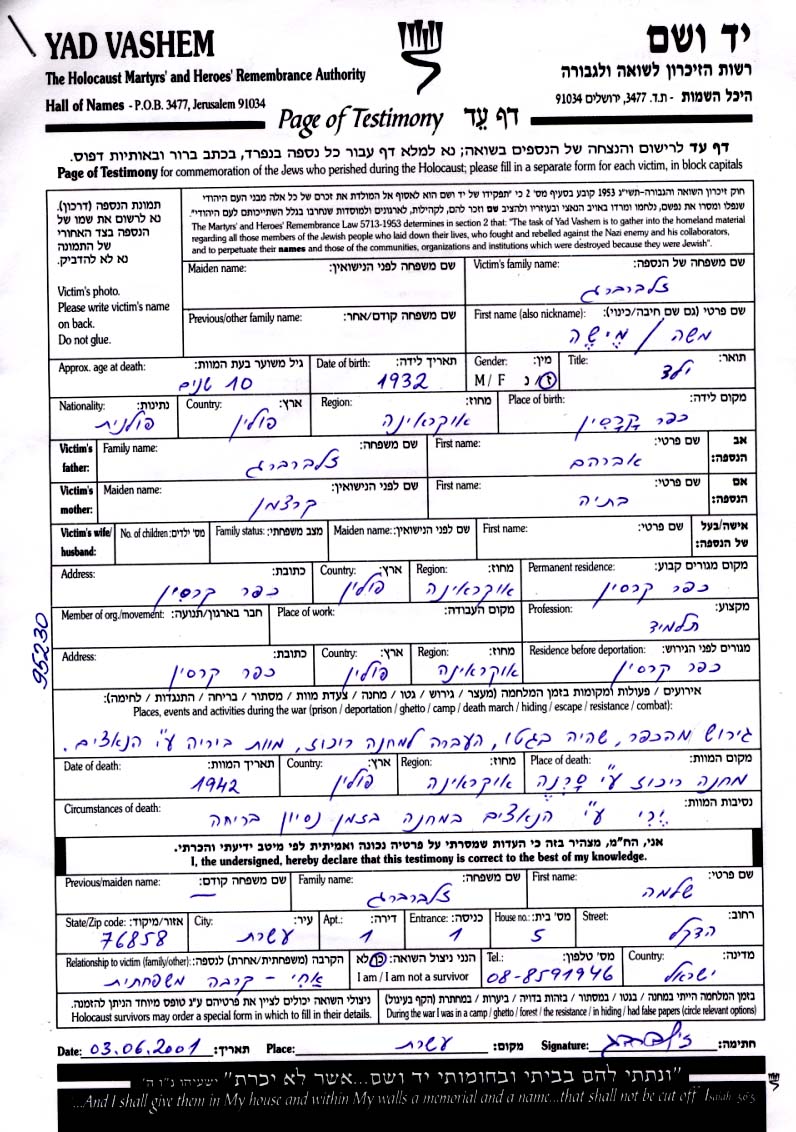 YAD VASHEM
יד ושם
The Holocaust Martyrs' and Heroes' Remembrance Authority
רשות הזיכרון לשואה ולגבורה
Hall of Names - P.O.B. 3477, Jerusalem 91034
היכל השמות - ת.ד. 3477, ירושלים 91034
Page of Testimony דף עֵד
דף עד לרישום והנצחה של הנספים בשואה; נא למלא דף עבור כל נספה בנפרד, בכתב ברור ובאותיות דפוס.
Page of Testimony for commemoration of the Jews who perished during the Holocaust; please fill in a separate form for each victim, in block capitals
תמונת הנספה (דרכון).
נא לרשום את שמו של
הנספה בצד האחורי
של התמונה
נא לא להדביק.
Victim's photo.
Please write victim's name
on back.
Do not glue.
חוק זיכרון השואה והגבורה-תשי"ג 1953 קובע בסעיף מס' 2 כי "תפקידו של יד ושם הוא לאסוף אל המולדת את זכרם של כל אלה מבני העם היהודי
שנפלו ומסרו את נפשם, נלחמו ומרדו באויב הנאצי ובעוזריו ולהציב שם וזכר להם, לקהילות, לארגונים ולמוסדות שנחרבו בגלל השתייכותם לעם היהודי".
The Martyrs' and Heroes' Remembrance Law 5713-1953 determines in section 2 that: "The task of Yad Vashem is to gather into the homeland material
regarding all those members of the Jewish people who laid down their lives, who fought and rebelled against the Nazi enemy and his collaborators,
and to perpetuate their names and those of the communities, organizations and institutions which were destroyed because they were Jewish".
Victim's family name: שם משפחה של הנספה:
זלברברג
Maiden name: שם משפחה לפני הנישואין:
First name (also nickname): שם פרטי (גם שם חיבה/כינוי):
משה / מישה
Previous/other family name: שם משפחה קודם/אחר:
Title: תואר:
ילד
Gender: מין:
M / F ז / נ
Date of birth: תאריך לידה:
1932
Approx. age at death: גיל משוער בעת המוות:
10 שנים
Place of birth: מקום לידה:
כפר קרסין
Region: מחוז:
אוקראינה
Country: ארץ:
פולין
Nationality: נתינות:
פולנית
Victim's father: אב הנספה:
First name: שם פרטי:
אברהם
Family name: שם משפחה:
זלברברג
Victim's mother: אם הנספה:
First name: שם פרטי:
בתיה
Maiden name: שם לפני הנישואין:
קרצמן
Victim's wife/husband: אישה/בעל של הנספה:
First name: שם פרטי:
Maiden name: שם לפני הנישואין:
Family status: מצב משפחתי:
No. of children: מס' ילדים:
Permanent residence: מקום מגורים קבוע:
כפר קרסין
Region: מחוז:
אוקראינה
Country: ארץ:
פולין
Address: כתובת:
כפר קרסין
Profession: מקצוע:
תלמיד
Place of work: מקום העבודה:
Member of org./movement: חבר בארגון/תנועה:
Residence before deportation: מגורים לפני הגירוש:
כפר קרסין
Region: מחוז:
אוקראינה
Country: ארץ:
פולין
Address: כתובת:
כפר קרסין
95230
אירועים / פעולות ומקומות בזמן המלחמה (מעצר / גירוש / גטו / מחנה / צעדת מוות / מסתור / בריחה / התנגדות / לחימה):
Places, events and activities during the war (prison / deportation / ghetto / camp / death march / hiding / escape / resistance / combat):
גירוש מהכפר, שהיה בגטו, העברה למחנה ריכוז, מוות ביריה ע"י הנאצים.
Place of death: מקום המוות:
מחנה ריכוז ע"י סרנה
Region: מחוז:
אוקראינה
Country: ארץ:
פולין
Date of death: תאריך המוות:
1942
Circumstances of death: נסיבות המוות:
ירי ע"י הנאצים במחנה בזמן נסיון בריחה
אני, הח"מ, מצהיר בזה כי העדות שמסרתי על פרטיה נכונה ואמיתית לפי מיטב ידיעתי והכרתי.
I, the undersigned, hereby declare that this testimony is correct to the best of my knowledge.
First name: שם פרטי:
שלמה
Family name: שם משפחה:
זלברברג
Previous/maiden name: שם משפחה קודם:
—
Street: רחוב:
הדקל
House no.: מס' בית:
5
Entrance: כניסה:
1
Apt.: דירה:
1
City: עיר:
עשרת
State/Zip code: אזור/מיקוד:
76858
Country: מדינה:
ישראל
Tel.: מס' טלפון:
08-8591946
הנני ניצול השואה: כן / לא
I am / I am not a survivor
Relationship to victim (family/other): הקרבה (משפחתית/אחרת) לנספה:
אחי - קרבה משפחתית
בזמן המלחמה הייתי במחנה / בגטו / במסתור / בזהות בדויה / ביערות / במחתרת (הקף בעיגול)
During the war I was in a camp / ghetto / forest / the resistance / in hiding / had false papers (circle relevant options)
ניצולי השואה יכולים לציין את פרטיהם ע"ג טופס מיוחד הניתן להזמנה.
Holocaust survivors may order a special form in which to fill in their details.
Date: 03.06.2001 תאריך: Place: עשרת מקום: Signature: חתימה:
"ונתתי להם בביתי ובחומותי יד ושם...אשר לא יכרת" ישעיהו נ"ו ה'
"...And I shall give them in My house and within My walls a memorial and a name...that shall not be cut off" Isaiah 56:5